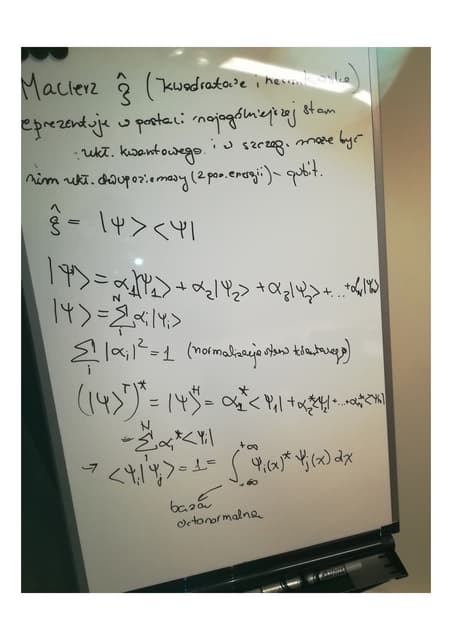 Macierz ρ̂ (kwadratowe i hermitowskie)
reprezentuje w postaci najogólniejszej stan
ukł. kwantowego i w szczeg. może być
nim ukł. dwupoziomowy (2 poz. energii) - qubit.
ρ̂ = |Ψ><Ψ|
|Ψ> = α₁|Ψ₁> + α₂|Ψ₂> + α₃|Ψ₃> + ... + αₙ|Ψₙ>
|Ψ> = ∑ᵢᴺ αᵢ|Ψᵢ>
∑ᵢ |αᵢ|² = 1 (normalizacja stanu kwantowego)
(|Ψ>ᵀ)* = |Ψ>ᴴ = α₁*<Ψ₁| + α₂*<Ψ₂| + ... + αₙ*<Ψₙ|
= ∑ᵢᴺ αᵢ*<Ψᵢ|
→ <Ψᵢ|Ψⱼ> = 1 = ∫₋∞⁺∞ Ψᵢ(x)* Ψⱼ(x) dx
baza
ortonormalna